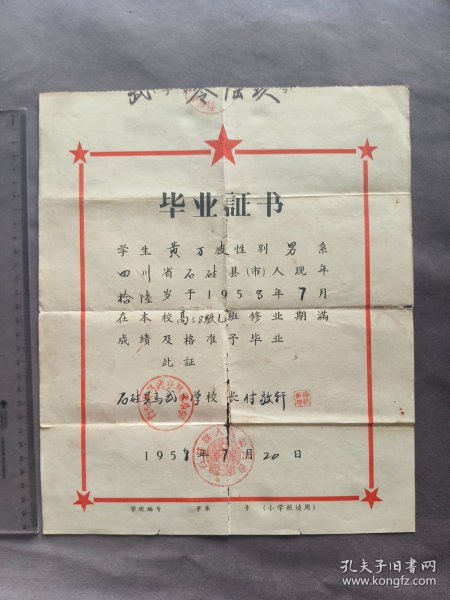 毕业証书
学生黄万 性别男系
四川省石硅县(市)人现年
拾陆岁于1958年7月
在本校高58级乙班修业期满
成绩及格准予毕业
此証
石硅县马武 学校 长付敬轩
1958年7月20日
学校编号 字第 号 (小学校适用)
孔夫子旧书网
www.kongfz.com